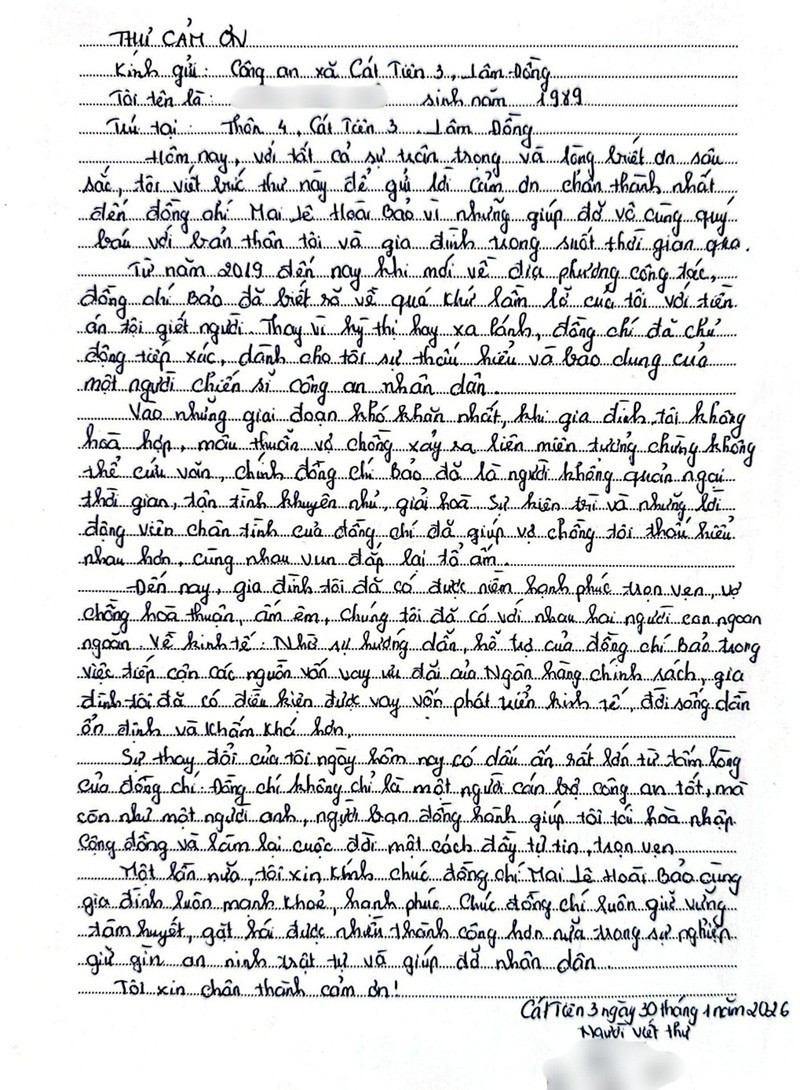 THƯ CẢM ƠN
Kính gửi: Công an xã Cát Tiên 3, Lâm Đồng
Tôi tên là: sinh năm 1989
Trú tại: Thôn 4, Cát Tiên 3. Lâm Đồng
Hôm nay, với tất cả sự trân trọng và lòng biết ơn sâu
sắc, tôi viết bức thư này để gửi lời cảm ơn chân thành nhất
đến đồng chí Mai Lê Hoài Bảo vì những giúp đỡ vô cùng quý
báu với bản thân tôi và gia đình trong suốt thời gian qua.
Từ năm 2019 đến nay khi mới về địa phương công tác,
đồng chí Bảo đã biết rõ về quá khứ lầm lỡ của tôi với tiền
án tội giết người. Thay vì kỳ thị hay xa lánh, đồng chí đã chủ
động tiếp xúc, dành cho tôi sự thấu hiểu và bao dung của
một người chiến sĩ công an nhân dân.
Vào những giai đoạn khó khăn nhất, khi gia đình tôi không
hoà hợp, mâu thuẫn vợ chồng xảy ra liên miên tưởng chừng không
thể cứu vãn, chính đồng chí Bảo đã là người không quản ngại
thời gian, tận tình khuyên nhủ, giải hoà. Sự kiên trì và những lời
động viên chân tình của đồng chí đã giúp vợ chồng tôi thấu hiểu
nhau hơn, cùng nhau vun đắp lại tổ ấm.
Đến nay, gia đình tôi đã có được niềm hạnh phúc trọn vẹn, vợ
chồng hoà thuận, ấm êm, chúng tôi đã có với nhau hai người con ngoan
ngoãn. Về kinh tế: Nhờ sự hướng dẫn, hỗ trợ của đồng chí Bảo trong
việc tiếp cận các nguồn vốn vay ưu đãi của Ngân hàng chính sách, gia
đình tôi đã có điều kiện được vay vốn phát triển kinh tế, đời sống dần
ổn định và khấm khá hơn.
Sự thay đổi của tôi ngày hôm nay có dấu ấn rất lớn từ tấm lòng
của đồng chí. Đồng chí không chỉ là một người cán bộ công an tốt, mà
còn như một người anh, người bạn đồng hành giúp tôi tái hoà nhập
Cộng đồng và làm lại cuộc đời một cách đầy tự tin, trọn vẹn
Một lần nữa, tôi xin kính chúc đồng chí Mai Lê Hoài Bảo cùng
gia đình luôn mạnh khoẻ, hạnh phúc. Chúc đồng chí luôn giữ vững
tâm huyết, gặt hái được nhiều thành công hơn nữa trong sự nghiệp
giữ gìn an ninh trật tự và giúp đỡ nhân dân.
Tôi xin chân thành cảm ơn!
Cát Tiên 3 ngày 30 tháng 1 năm 2026
Người viết thư